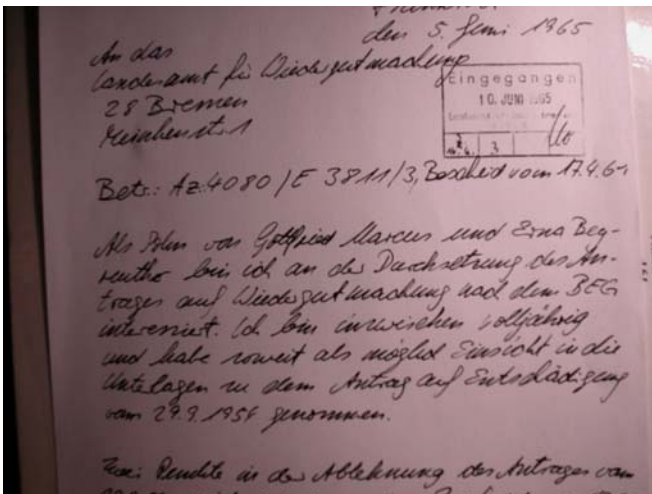 den 5. Juni 1965
An das
Landesamt für Wiedergutmachung
28 Bremen
Eingegangen
10. JUNI 1965
3
Betr.: Az: 4080/E 3811/3, Bescheid vom 17.4.61
Als Sohn von Gottfried Marcus und Erna Beg-
rentho bin ich an der Durchsetzung des An-
trages auf Wiedergutmachung nach dem BEG
interessiert. Ich bin inzwischen volljährig
und habe soweit als möglich Einsicht in die
Unterlagen zu dem Antrag auf Entschädigung
vom 29.9.195 genommen.
Zwei Punkte in der Ablehnung des Antrages vom